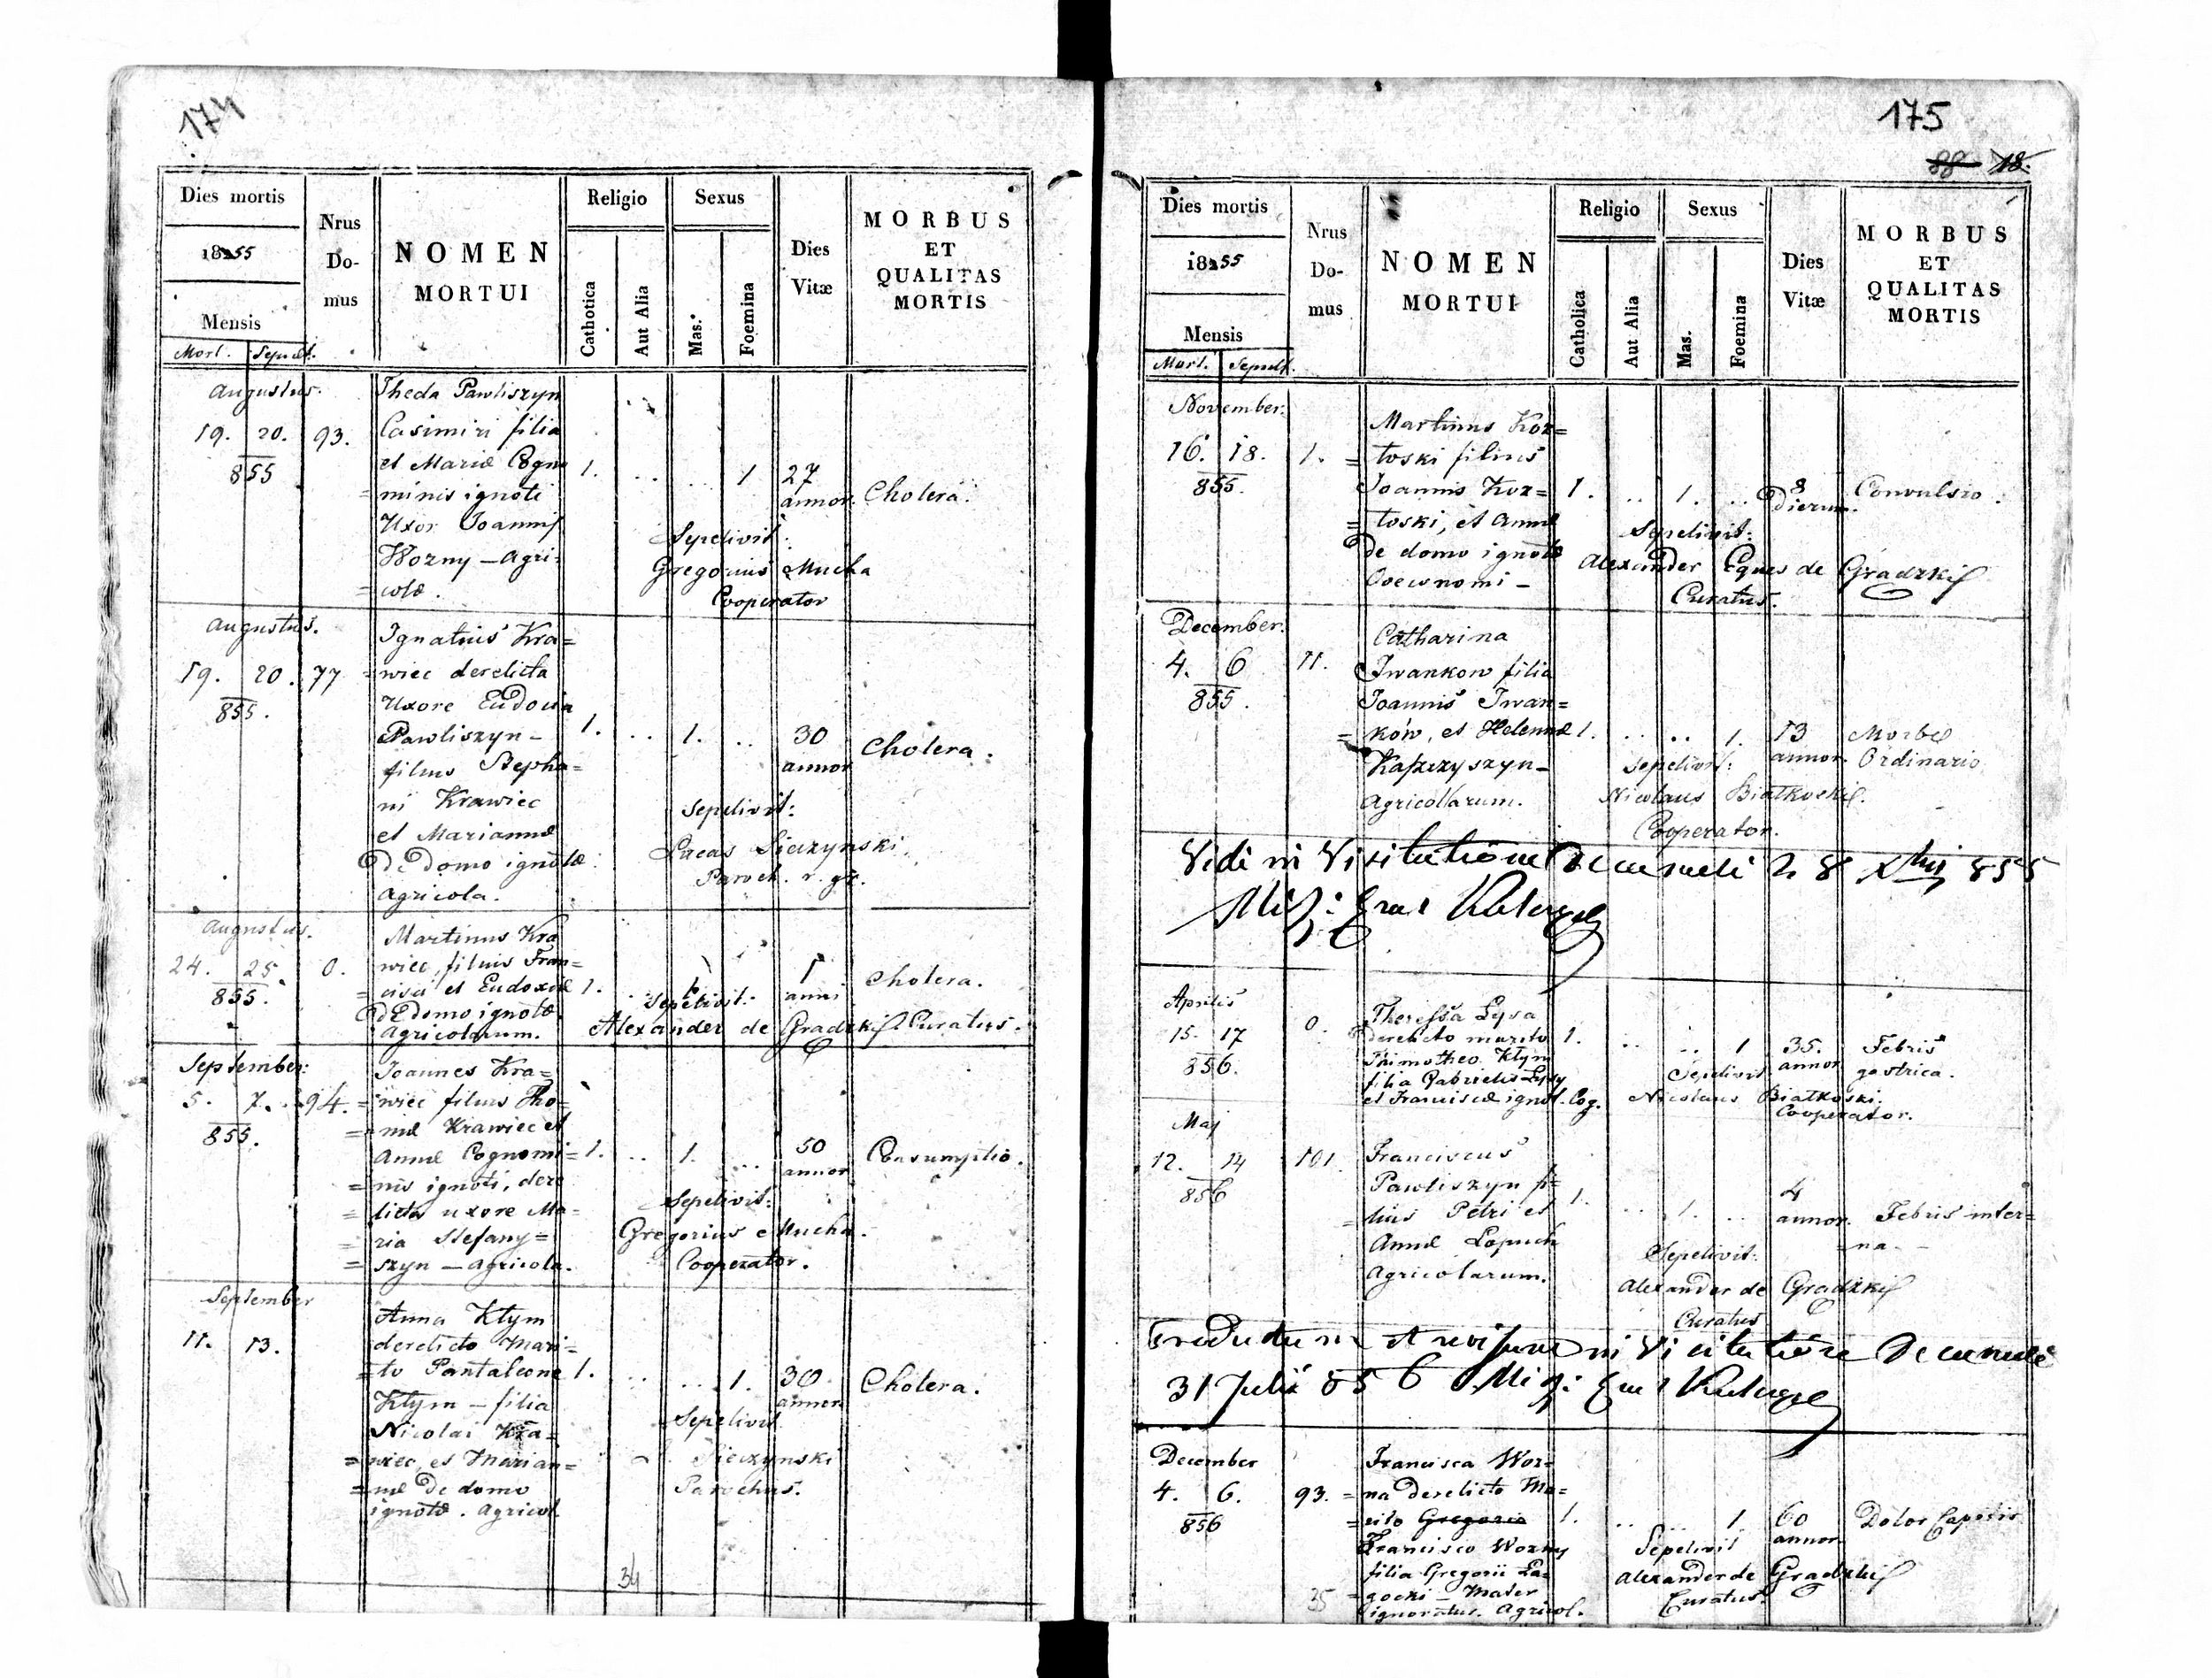 174
Dies mortis
1855
Mensis
Mort. Sepult.
Nrus Do- mus
NOMEN MORTUI
Religio
Cathotica
Aut Alia
Sexus
Mas.
Foemina
Dies Vitæ
MORBUS ET QUALITAS MORTIS
Augustus.
19. 20. 93.
855
Theda Pawliszyn
Casimiri filia
et Mariæ Cogno
= minis ignoti
Uxor Joannis
Wozny – Agri=
= colæ.
1. .. .. 1 27 annor. Cholera.
Sepelivit:
Gregorius Mucha
Cooperator
Augustus.
19. 20. 77
855.
Ignatius Kra=
= wiec derelicta
Uxore Eudoxia
Pawliszyn –
filius Stepha=
ni Krawiec
et Mariannæ
De Domo ignotæ
Agricola.
1. .. 1. .. 30 annor Cholera.
Sepelivit:
Lucas Sieczynski
Paroch. r. gr.
Augustus.
24. 25. 0.
855.
Martinus Kra
wiec, filius Fran=
= cisci et Eudoxiæ
De Domo ignotæ
Agricolarum.
1. .. 1. 1 anni Cholera.
Sepelivit:
Alexander de Gradzki Curatus.
September:
5. 7. 94.
855.
Joannes Kra=
= wiec filius Tho=
= mæ Krawiec et
Annæ Cognomi=
= nis ignoti, dere
= licta uxore Ma=
= ria Stefany=
= szyn – Agricola.
1. .. 1. ... 50 annor Consumptio.
Sepelivit:
Gregorius Mucha.
Cooperator.
September
11. 13.
Anna Kłym
derelicto Mari=
= to Pantaleone
Kłym – filia
Nicolai Kra=
= wiec, et Marian=
= næ De domo
ignotæ. Agricol.
1. .. ... 1. 30 annor Cholera.
Sepelivit
Sieczynski
Parochus.
34
175
88 18.
Dies mortis
1855
Mensis
Mort. Sepult.
Nrus Do- mus
NOMEN MORTUI
Religio
Catholica
Aut Alia
Sexus
Mas.
Foemina
Dies Vitæ
MORBUS ET QUALITAS MORTIS
November.
16. 18. 1.
855.
Martinus Koz=
= łoski filius
Joannis Koz=
= łoski, et Annæ
De domo ignotæ
Oeconomi –
1. .. 1. .. 8 Dierum. Convulsio.
Sepelivit:
Alexander Eques de Gradzki
Curatus.
December.
4. 6 11.
855.
Catharina
Iwankow filia
Joannis Iwan=
= ków, et Helennæ
Kaprzyszyn –
Agricolarum.
1. .. .. 1. 13 annor. Morbo Ordinario
Sepelivit:
Nicolaus Białkoski.
Cooperator.
Vidi in Visitatione Decanali 28 Xbris 855
Aprilis
15. 17 0.
856.
Theressa Łysa
derelicto marito
Thimotheo Kłym
filia Gabrielis Łysy
et Franciscæ ignot. Cog.
1. .. .. 1 35. annor Febris gastrica.
Sepelivit
Nicolaus Białkoski.
Cooperator.
Maj
12. 14 101.
856
Franciscus
Pawliszyn fi=
= lius Petri et
Annæ Łopuch
Agricolarum.
1. .. 1. .. 4 annor. Febris inter=
= na –
Sepelivit:
Alexander de Gradzki
Curatus
Productum et revisum in Visitatione Decanali
31 Julii 856
December
4. 6. 93.
856
Francisca Woz=
= na Derelicto Ma=
= rito Gregorio
Francisco Wozny
filia Gregorii Ła=
= gocki – Mater
ignoratus. Agricol.
1. .. .. 1 60 annor Dolor Capitis
Sepelivit
Alexander de Gradzki
Curatus.
35